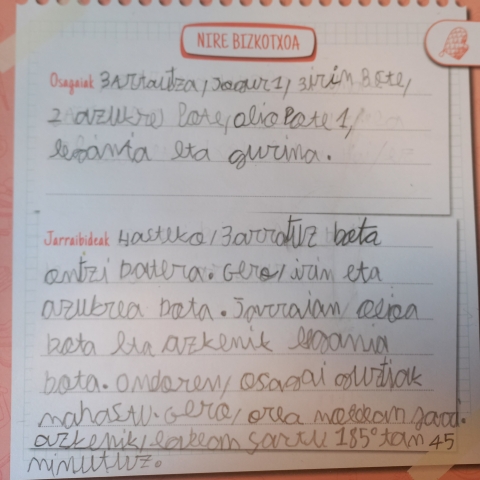 NIRE BIZKOTXOA
Osagaiak 3 arrautza, jogur 1, 3 irin Bote,
2 azukre Pote, olio Pote 1,
legania eta gurina.
Jarraibideak Hasteko, 3 arrautz bota
ontzi batera. Gero, irin eta
azukrea bota. Jarraian, olioa
bota eta azkenik legania
bota. Ondoren, osagai guztiak
nahastu. Gero, orea moldean jarri.
azkenik, labean sartu 185° tan 45
minutuz.